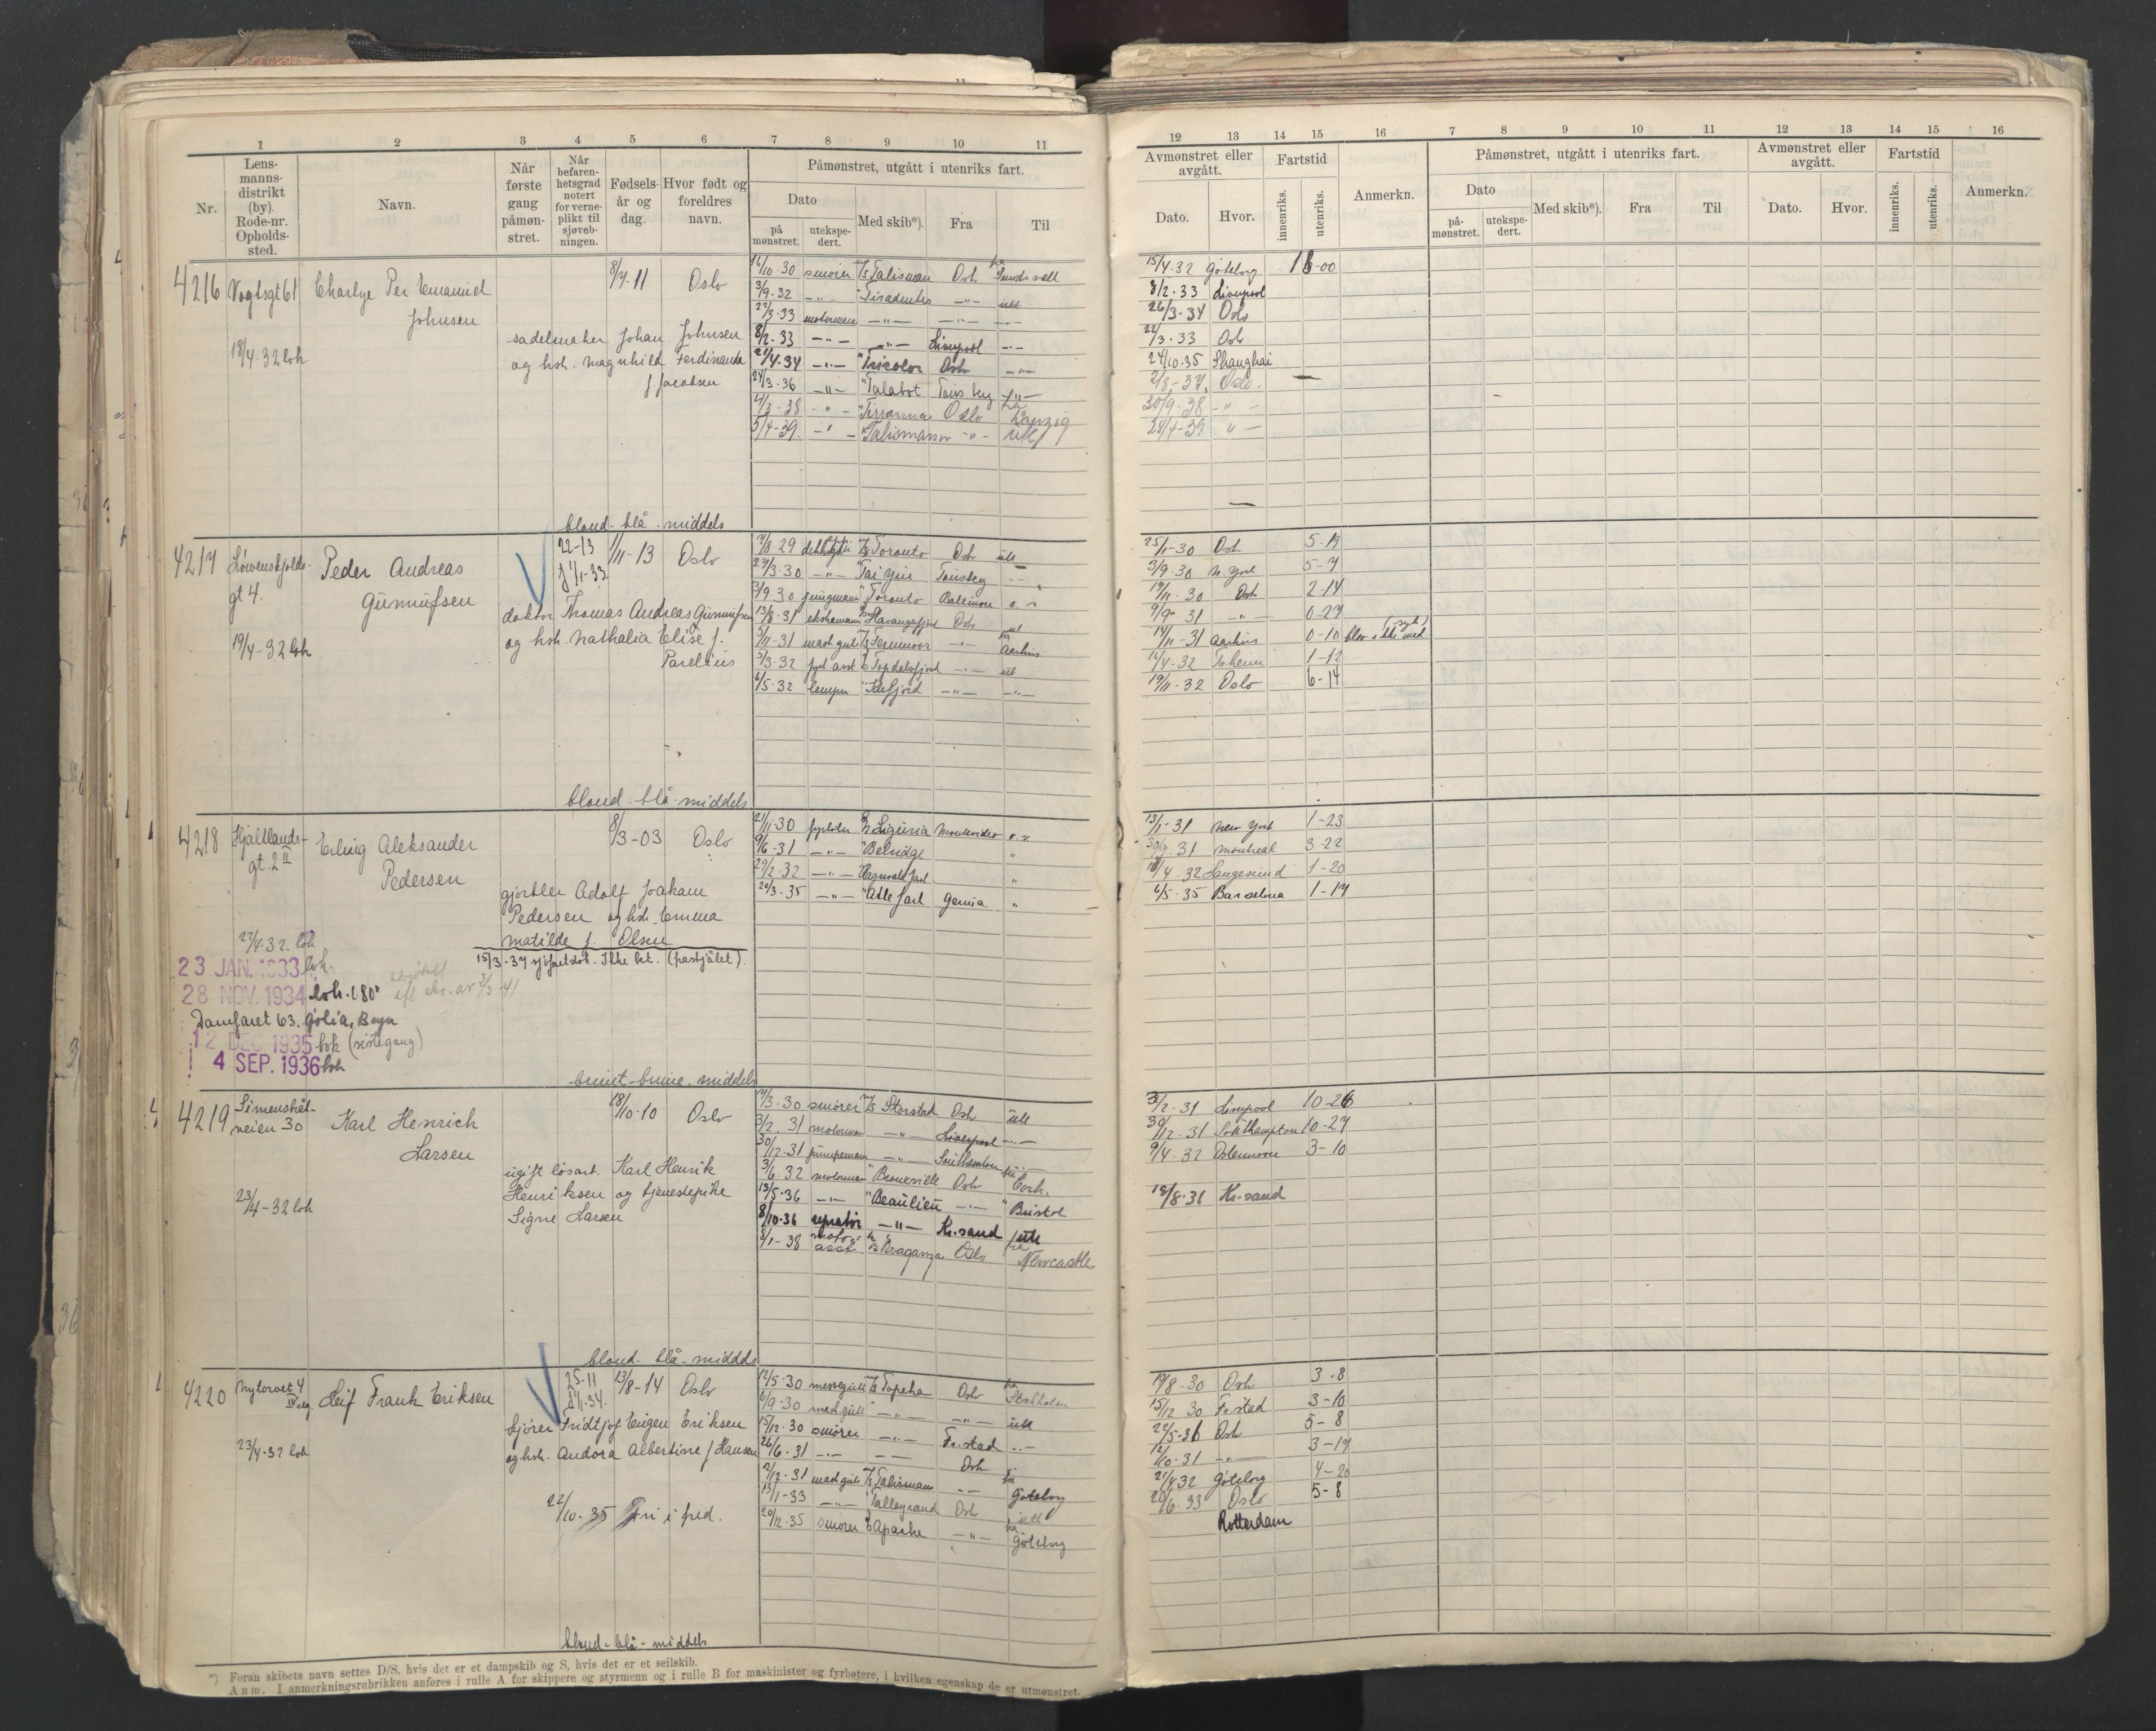 1 2 3 4 5 6 7 8 9 10 11
Nr.
Lens-
manns-
distrikt
(by).
Rode-nr.
Opholds-
sted.
Navn.
Når
første
gang
påmøn-
stret.
Når
befaren-
hetsgrad
notert
for verne-
plikt til
sjøveb-
ningen.
Fødsels-
år og
dag.
Hvor født og
foreldres
navn.
Påmønstret, utgått i utenriks fart.
Dato
på
mønstret.
utekspe-
dert.
Med skib*).
Fra
Til
4216 Vogtsgt 61 Charlye Per Emanuel
Johnsen
8/4-11 Oslo
18/4-32 loh
sadelmaker Johan Johnsen
og hst. Magnhild Ferdinanda
f. Jacobsen
16/10-30 smører M/S Talisman Osl. fra Sundsvall
3/9-32 -"- " Tiradentes -"- utl
22/3-33 motormann -"- -"- -"-
8/2-33 -"- -"- Liverpool -"-
21/4-34 -"- " Tricolor Osl -"-
24/3-36 -"- " Talabot Tønsberg -"-
4/3-38 -"- " Tirranna Oslo Danzig
5/4-39. -"- " Talisman -"- utl
blond - blå - middels
4217 Løvenskjolds-
gt 4.
Peder Andreas
Gunnufsen
22-13
f 1/1-33
1/11-13 Oslo
19/4-32 loh
doktor Thomas Andreas Gunnufsen
og hst. Nathalia Elise f.
Parelius
4/8 29 M/S Toronto Osl utl
27/3 30 -"- " Tai Yin Tønsberg -"-
3/9 30 jungmann " Toronto Baltimore o. s
13/8-31 ekstramann Stavangerfjord Osl. utl
5/11-31 mask gutt M/S Fernmoor -"- Aarhus
5/3-32 fyrb asst Topdalsfjord -"- utl
6/5-32 lemper " Idefjord -"- -"-
blond - blå - middels
4218 Hjaltlands-
gt. 2 II
Erling Aleksander
Pedersen
8/3-03 Oslo
gjørtler Adolf Joakam
Pedersen og hst. Emma
Matilde f. Olsen
22/4-32. loh
15/3-37 sjøfartsbok. Ikke bet. (frastjålet).
23 JAN. 1933 loh.
28 NOV. 1934 loh.
ifl. skr. av 3/3-41
Damfaret 63. Gølia, Bryn
12 DEC 1935 loh (siste gang)
4 SEP. 1936 loh
21/11-30 fyrbøter Liguria Montevideo o. s.
9/6-31 -"- " Belridge "
29/2-32 -"- " Ragnvald Jarl "
20/3-35 -"- " Atle Jarl Genua "
brunt - brune - middels
4219 Simensbråt-
veien 30
Karl Henrich
Larsen
18/10-10 Oslo
23/4-32 loh
ugift løsarb. Karl Henrik
Henriksen og tjenestepike
Signe Larsen
19/3-30 smører M/S Storstad Osl utl
3/2-31 motorman -"- Liverpool -"-
30/12-31 pumpeman -"- Southampton -"-
3/6 32 motorman " Bronxville Osl fra Cork.
13/5-36 -"- " Beaulieu -"- " Bristol
8/10-36 reparatør -"- Kr.sand utl
8/1-38 motor-
asst. Braganza Oslo fra Newcastle
blond - blå - middels
4220 Nytorvet 4 Leif Frank Eriksen
25-11
f 1/1-34.
13/8-14 Oslo
23/4-32 loh
kjører Fridtjof Eugen Eriksen
og hst. Andora Albertine f. Hansen
22/10-35 Fri i fred.
12/5-30 messegutt M/S Topeka Oslo fra Stockholm
6/9-30 mask gutt " -"- -"- utl
15/12-30 smører -"- Fr.stad -"-
26/6-31 -"- -"- Osl -"-
2/12-31 mask gutt M/S Talisman -"- fra Gøteborg
13/1-33 -"- " Talleyrand Osl utl
20/12-35 smører " Apache -"- fra Gøteborg
blond - blå - middels
*) Foran skibets navn settes D/S, hvis det er et dampskib og S, hvis det er et seilskib.
Anm. I anmerkningsrubrikken anføres i rulle A for skippere og styrmenn og i rulle B for maskinister og fyrbøtere, i hvilken egenskap de er utmønstret.
12 13 14 15 16 7 8 9 10 11 12 13 14 15 16
Avmønstret eller
avgått.
Dato.
Hvor.
Fartstid
innenriks.
utenriks.
Anmerkn.
Påmønstret, utgått i utenriks fart.
Dato
på-
mønstret.
utekspe-
dert.
Med skib*).
Fra
Til
Avmønstret eller
avgått.
Dato.
Hvor.
Fartstid
innenriks.
utenriks.
Anmerkn.
15/4-32 Gøteborg 16-00
8/2-33 Liverpool
26/3-34 Oslo
22/3-33 Osl
24/10-35 Shanghai
2/8-37. Oslo.
30/9-38 -"-
28/4-39 -"-
25/1-30 Osl 5-19
3/9-30 N. York 5-7
19/11-30 Osl 2-14
9/9-31 -"- 0-27
14/11-31 Aarhus 0-10 blev ikke med (syk)
16/4-32 1-12
19/11-32 Oslo 6-14
13/1-31 New York 1-23
31 Montreal 3-22
18/4-32 Langesund 1-20
6/5-35 Barcelona 1-17
3/2-31 Liverpool 10-26
30/12-31 Southampton 10-27
9/4-32 3-10
18/8-36 Kr.sand
19/8-30 Osl 3-8
15/12 30 Fr.stad 3-10
22/5-31 Osl 5-8
12/10-31 -"- 3-17
21/4 32 Gøteborg 4-20
20/6-33 Oslo 5-8
Rotterdam